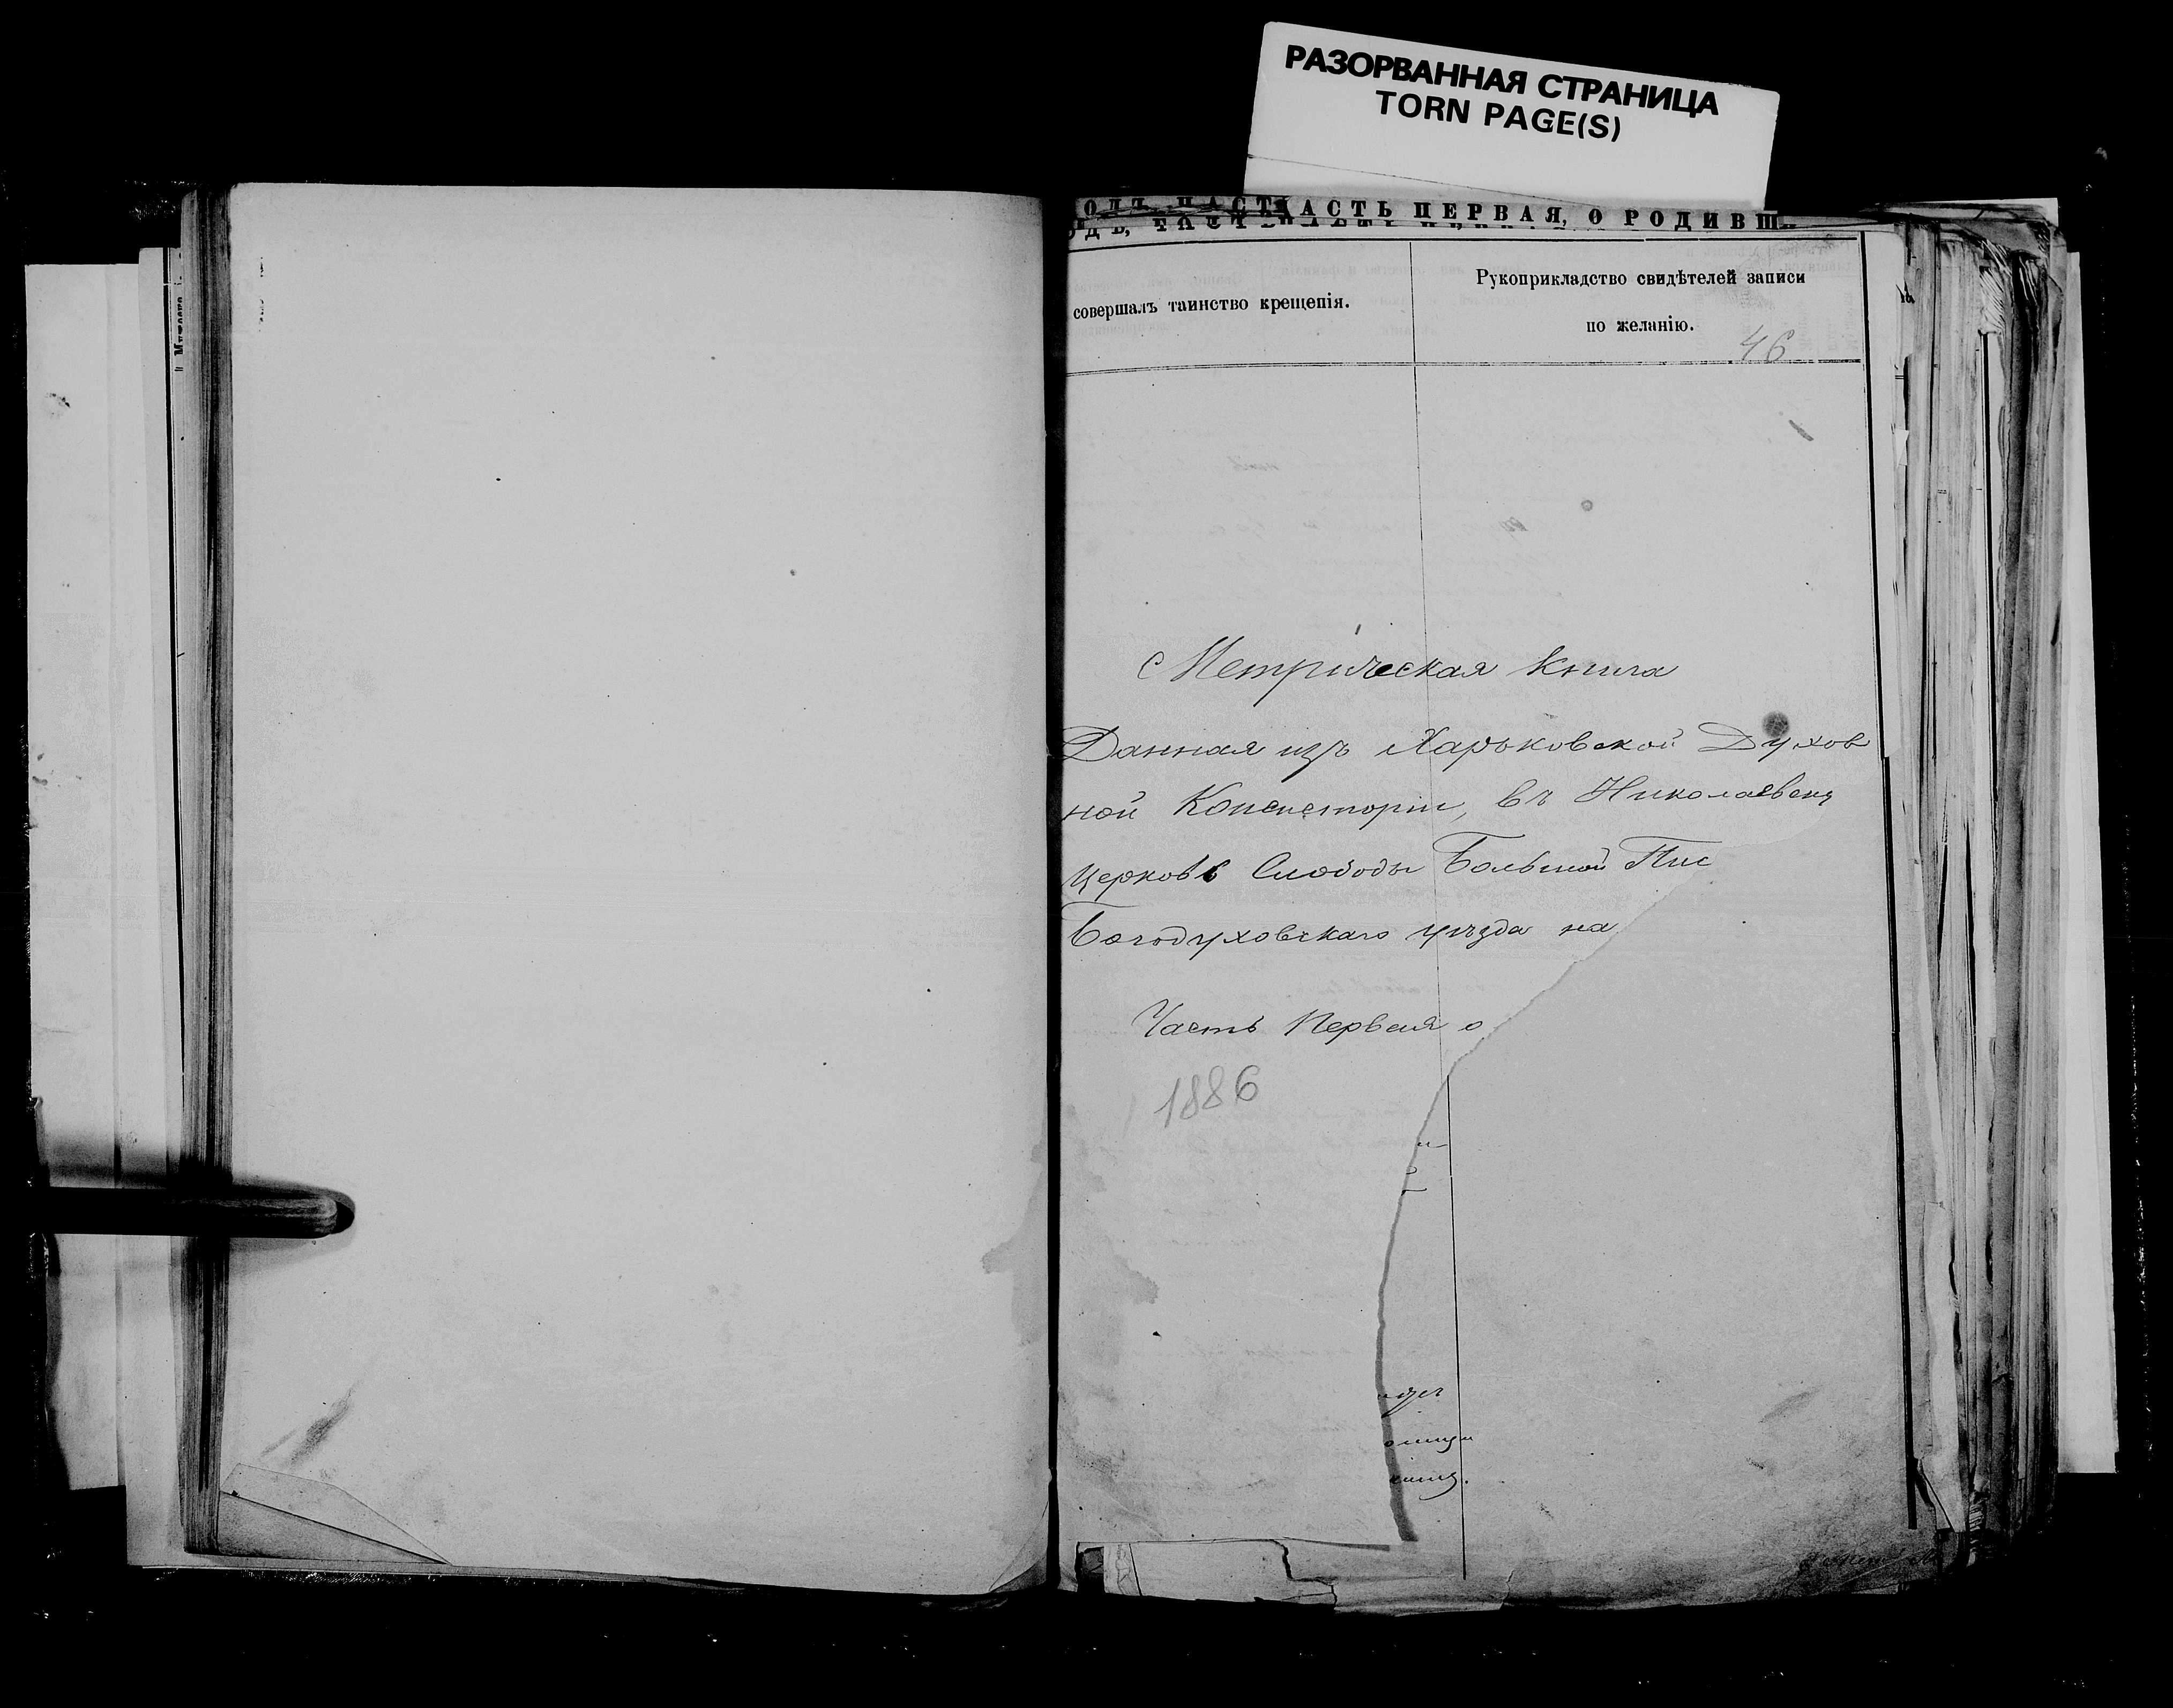 РАЗОРВАННАЯ СТРАНИЦА
TORN PAGE(S)
АСТЬ ПЕРВАЯ, О РОДИВШ
совершалъ таинство крещенія.
Рукоприкладство свидѣтелей записи
по желанію.
46
Метрическая книга
Данная изъ Харьковской Духов
ной Консисторіи, въ Николаевску
Церковь Слободы Большой Пис
Богодуховскаго уѣзда на
Часть Первая о
1886